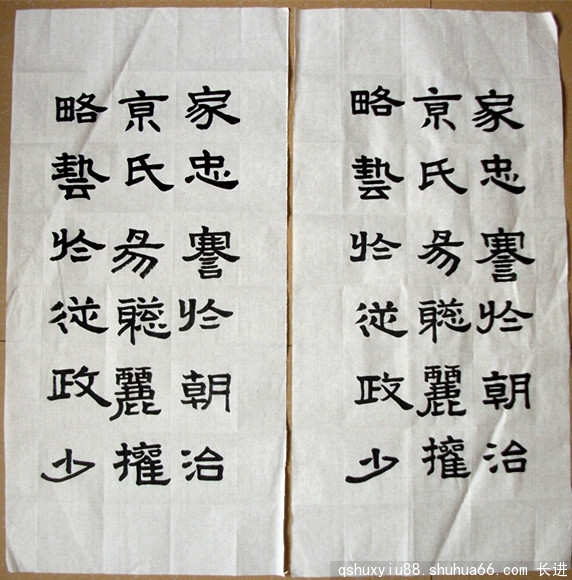 家忠謇於朝治
京氏易聰麗權
略藝於從政少
家忠謇於朝治
京氏易聰麗權
略藝於從政少
qshuxyiu88.shuhua66.com 长进